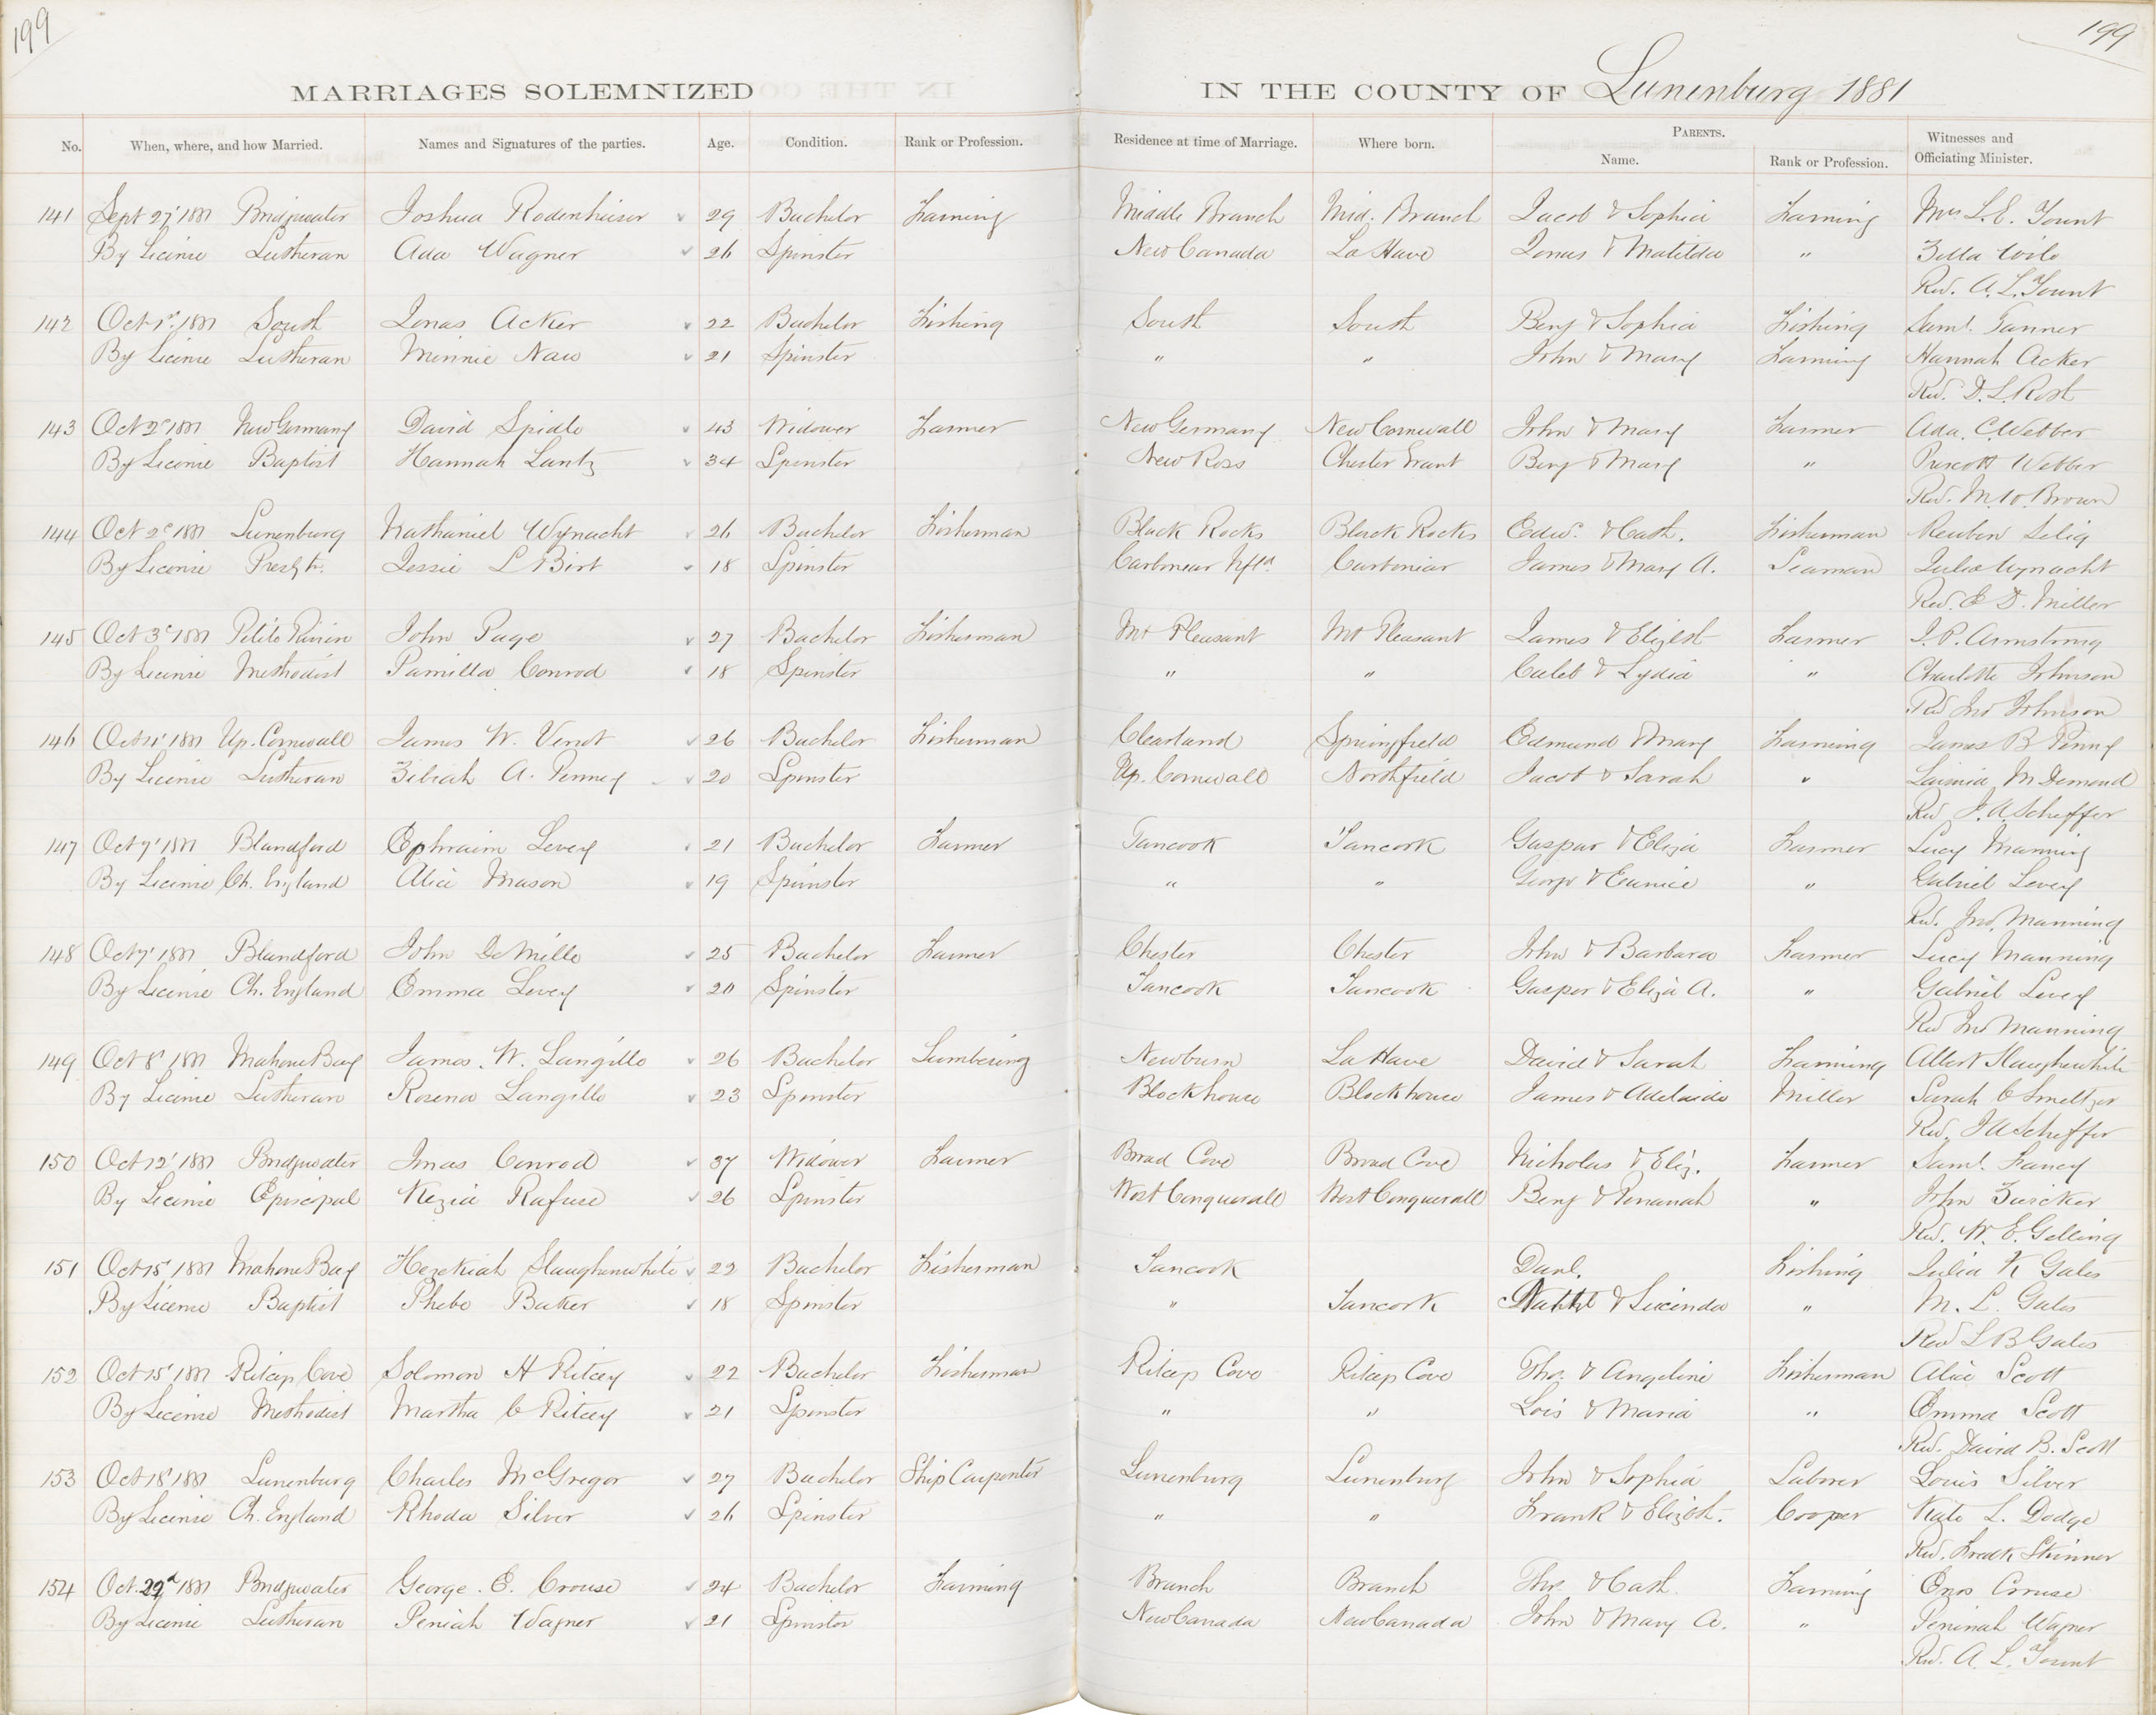 199
199
MARRIAGES SOLEMNIZED IN THE COUNTY OF Lunenburg 1881
No. When, where, and how Married. Names and Signatures of the parties. Age. Condition. Rank or Profession. Residence at time of Marriage. Where born. PARENTS. Name. Rank or Profession. Witnesses and Officiating Minister.
141 Sept 27' 1881 Bridgwater Joshua Rodenhiser 29 Bachelor Farming Middle Branch Mid. Branch Jacob & Sophia Farming Mrs L. E. Yount
By License Lutheran Ada Wagner 26 Spinster New Canada La Have Jonas & Matilda "
Rev. A. L. Yount
142 Oct 1st 1881 South Jonas Acker 22 Bachelor Fishing South South Benj & Sophia Fishing Saml. Tanner
By License Lutheran Minnie Naw 21 Spinster " " John & Mary Farming Hannah Acker
Rev. D. L. Rost
143 Oct 2d 1881 New Germany David Spidle 43 Widower Farmer New Germany New Cornwall John & Mary Farmer Ada. C. Webber
By License Baptist Hannah Lantz 34 Spinster New Ross Chester Grant Benj & Mary " Prescott Webber
Rev. M. W. Brown
144 Oct 2d 1881 Lunenburg Nathaniel Wynacht 26 Bachelor Fisherman Black Rocks Black Rocks Edwd. & Cath. Fisherman Reuben Selig
By License Presbt. Jessie L Birt 18 Spinster Carbonear Nfld Carbonear James & Mary A. Seaman Julia Wynacht
Rev. E D. Miller
145 Oct 3d 1881 Petite Riviere John Page 27 Bachelor Fisherman Mt Pleasant Mt Pleasant James & Elizbt Farmer J. P. Armstrong
By License Methodist Pamilla Conrod 18 Spinster " " Caleb & Lydia " Charlotte Johnson
Rev Jno Johnson
146 Oct 4' 1881 Up. Cornwall James W. Venot 26 Bachelor Fisherman Clearland Springfield Edmund & Mary Farming James B Penny
By License Lutheran Zibiah A. Penney 20 Spinster Up. Cornwall Northfield Jacob & Sarah " M Demond
Rev J. A. Scheffer
147 Oct 7' 1881 Blandford Ephraim Levey 21 Bachelor Farmer Tancook Tancook Gaspar & Eliza Farmer Lucy Manning
By License Ch. England Alice Mason 19 Spinster " " George & Eunice " Gabriel Levey
Rev. Jno. Manning
148 Oct 7' 1881 Blandford John DeMille 25 Bachelor Farmer Chester Chester John & Barbara Farmer Lucy Manning
By License Ch. England Emma Levey 20 Spinster Tancook Tancook Gasper & Eliza A. " Gabriel Levey
Rev Jno Manning
149 Oct 8' 1881 Mahone Bay James. W. Langille 26 Bachelor Lumbering Newburn La Have David & Sarah Farming Albert Slaughenwhite
By License Lutheran Rosena Langille 23 Spinster Blockhouse Blockhouse James & Adelaide Miller Sarah C Smeltzer
Rev. J A Scheffer
150 Oct 12' 1881 Bridgwater Jonas Conrod 37 Widower Farmer Broad Cove Broad Cove Nicholas & Eliz. Farmer Saml. Fancy
By License Episcopal Kezia Rafuse 26 Spinster West Conquerall West Conquerall Benj & Penanah " John Zwicker
Rev. W. E. Gelling
151 Oct 15' 1881 Mahone Bay Hezekiah Slaughenwhite 22 Bachelor Fisherman Tancook Danl. Fishing Julia K Gates
By License Baptist Phebe Baker 18 Spinster " Tancook & Lucinda " M. L. Gates
Rev L B Gates
152 Oct 15' 1881 Ritcey Cove Solomon H Ritcey 22 Bachelor Fisherman Ritcey Cove Ritcey Cove Tho. & Angeline Fisherman Alice Scott
By License Methodist Martha C Ritcey 21 Spinster " " Lois & Maria " Emma Scott
Rev. David B. Scott
153 Oct 18' 1881 Lunenburg Charles McGregor 27 Bachelor Ship Carpenter Lunenburg Lunenburg John & Sophia Laborer Louis Silver
By License Ch. England Rhoda Silver 26 Spinster " " Frank & Elizbt. Cooper Kate L. Dodge
Rev. Fredk Skinner
154 Oct. 22d 1881 Bridgwater George. E. Crouse 24 Bachelor Farming Branch Branch Tho. & Cath. Farming Enos Crouse
By License Lutheran Peniah Wagner 21 Spinster New Canada New Canada John & Mary A. " Peninah Wagner
Rev. A. L. Yount